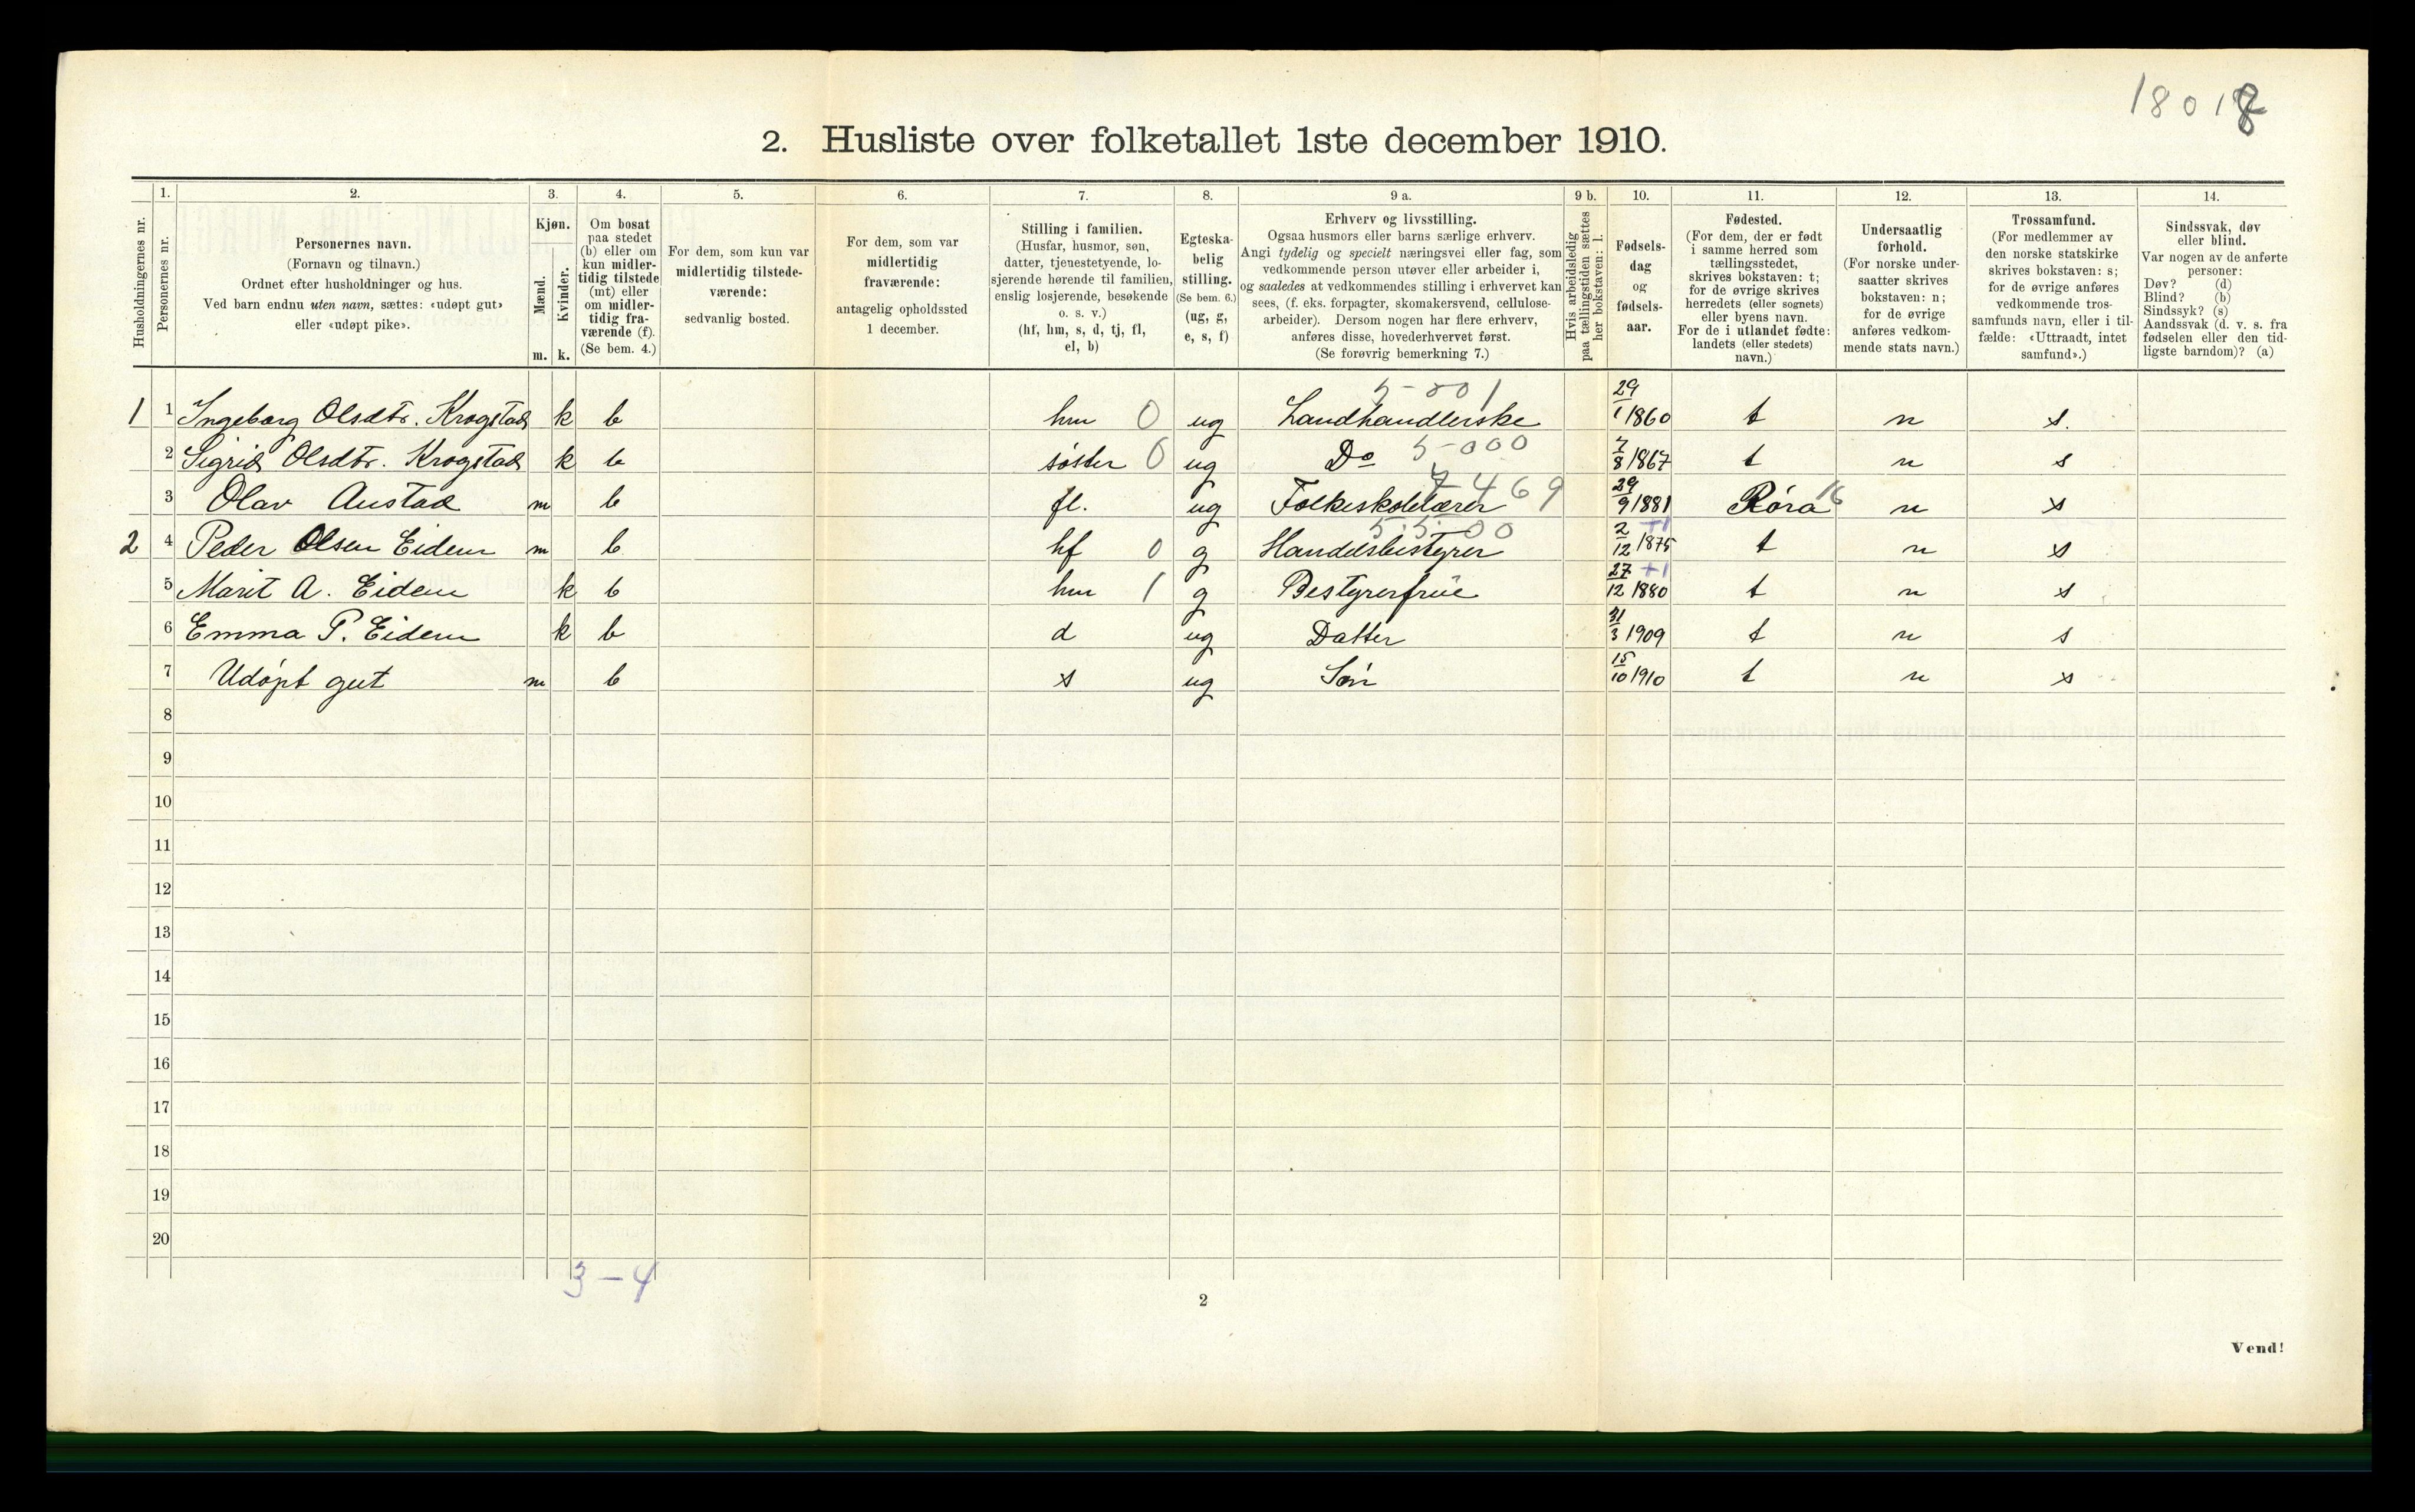 1801
2. Husliste over folketallet 1ste december 1910.
Husholdningernes nr.
1.
Personernes nr.
2.
Personernes navn.
(Fornavn og tilnavn.)
Ordnet efter husholdninger og hus.
Ved barn endnu uten navn, sættes: «udøpt gut»
eller «udøpt pike».
3.
Kjøn.
Mænd.
Kvinder.
m. k.
4.
Om bosat
paa stedet
(b) eller om
kun midler-
tidig tilstede
(mt) eller
om midler-
tidig fra-
værende (f).
(Se bem. 4.)
5.
For dem, som kun var
midlertidig tilstede-
værende:
sedvanlig bosted.
6.
For dem, som var
midlertidig
fraværende:
antagelig opholdssted
1 december.
7.
Stilling i familien.
(Husfar, husmor, søn,
datter, tjenestetyende, lo-
sjerende hørende til familien,
enslig losjerende, besøkende
o. s. v.)
(hf, hm, s, d, tj, fl,
el, b)
8.
Egteska-
belig
stilling.
(Se bem. 6.)
(ug, g,
e, s, f)
9 a.
Erhverv og livsstilling.
Ogsaa husmors eller barns særlige erhverv.
Angi tydelig og specielt næringsvei eller fag, som
vedkommende person utøver eller arbeider i,
og saaledes at vedkommendes stilling i erhvervet kan
sees, (f. eks. forpagter, skomakersvend, cellulose-
arbeider). Dersom nogen har flere erhverv,
anføres disse, hovederhvervet først.
(Se forøvrig bemerkning 7.)
9 b.
Hvis arbeidsledig
paa tællingstiden sættes
her bokstaven: l.
10.
Fødsels-
dag
og
fødsels-
aar.
11.
Fødested.
(For dem, der er født
i samme herred som
tællingsstedet,
skrives bokstaven: t;
for de øvrige skrives
herredets (eller sognets)
eller byens navn.
For de i utlandet fødte:
landets (eller stedets)
navn.)
12.
Undersaatlig
forhold.
(For norske under-
saatter skrives
bokstaven: n;
for de øvrige
anføres vedkom-
mende stats navn.)
13.
Trossamfund.
(For medlemmer av
den norske statskirke
skrives bokstaven: s;
for de øvrige anføres
vedkommende tros-
samfunds navn, eller i til-
fælde: «Uttraadt, intet
samfund».)
14.
Sindssvak, døv
eller blind.
Var nogen av de anførte
personer:
Døv? (d)
Blind? (b)
Sindssyk? (s)
Aandssvak (d. v. s. fra
fødselen eller den tid-
ligste barndom)? (a)
5-801
1 1 Ingeborg Olsdtr. Krogstad k b hm 0 ug Landhandlerske 29/1 1860 t n s.
5-000
2 Sigrid Olsdtr. Krogstad k b søster 0 ug Do 7/8 1867 t n s
7469
3 Olav Austad m b fl. ug Folkeskolelærer 29/9 1881 Røra 16 n s
5500
2 4 Peder Olsen Eidem m b hf 0 g Handelsbestyrer 2/12 1875 +1 t n s
5 Marit A. Eidem k b hm 1 g Bestyrerfrue 27/12 1880 +1 t n s
6 Emma P. Eidem k b d ug Datter 31/3 1909 t n s
7 Udøpt gut m b s ug Søn 15/10 1910 t n s
8
9
10
11
12
13
14
15
16
17
18
19
20
3-4
2
Vend!